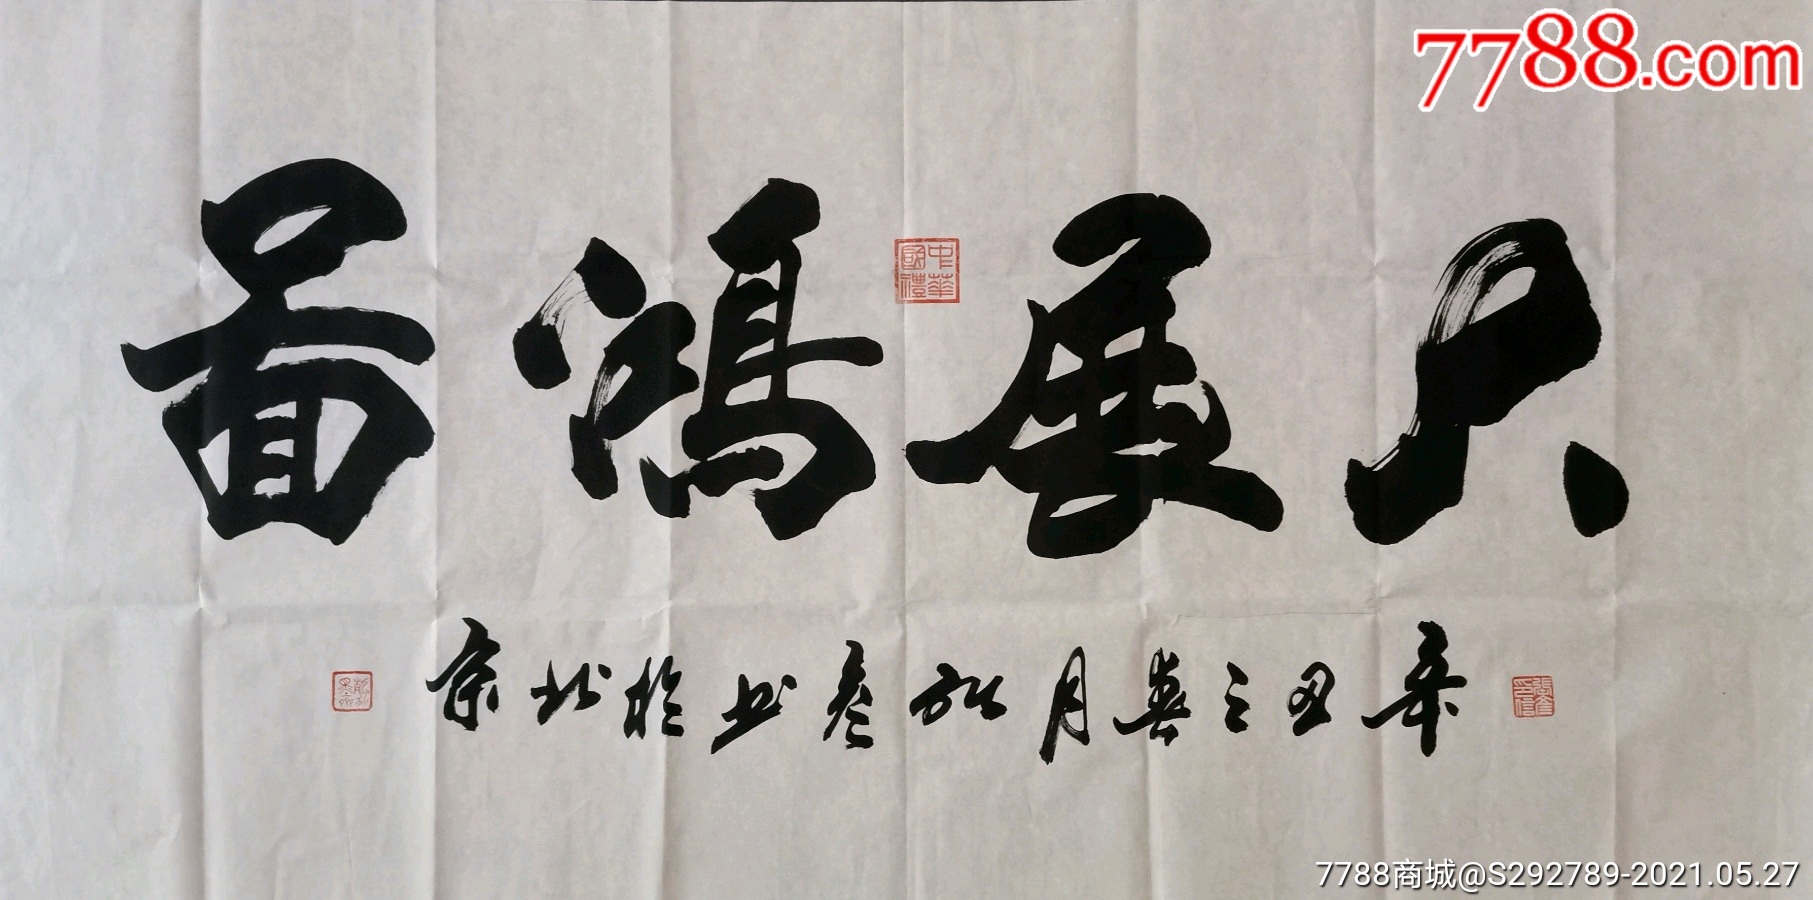 7788.com
大展鴻圖
中華國禮
辛丑之春月张彥书於北京
7788商城@S292789-2021.05.27